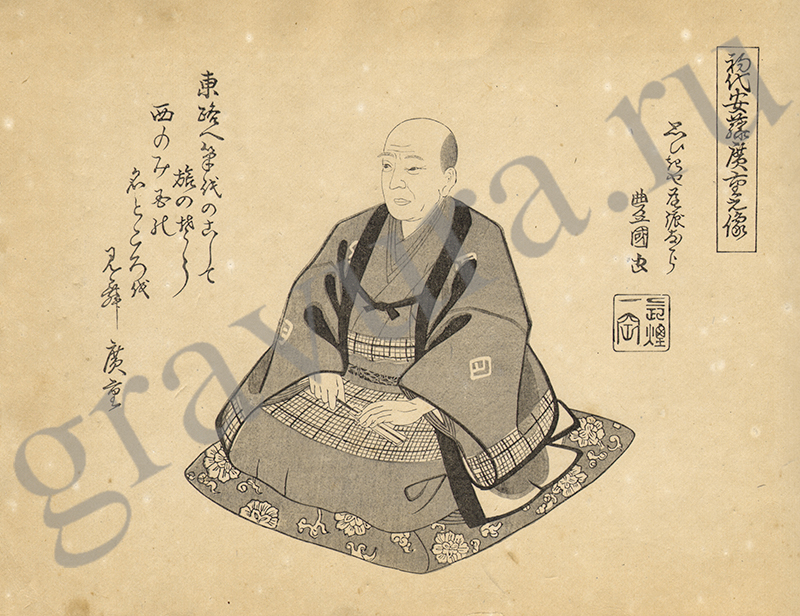 初代安藤廣重之像
思ひきや落涙ながら
豊國画
東路へ筆をのこして
旅のそら
西のみ国の
名ところを
見舞
廣重
gravura.ru